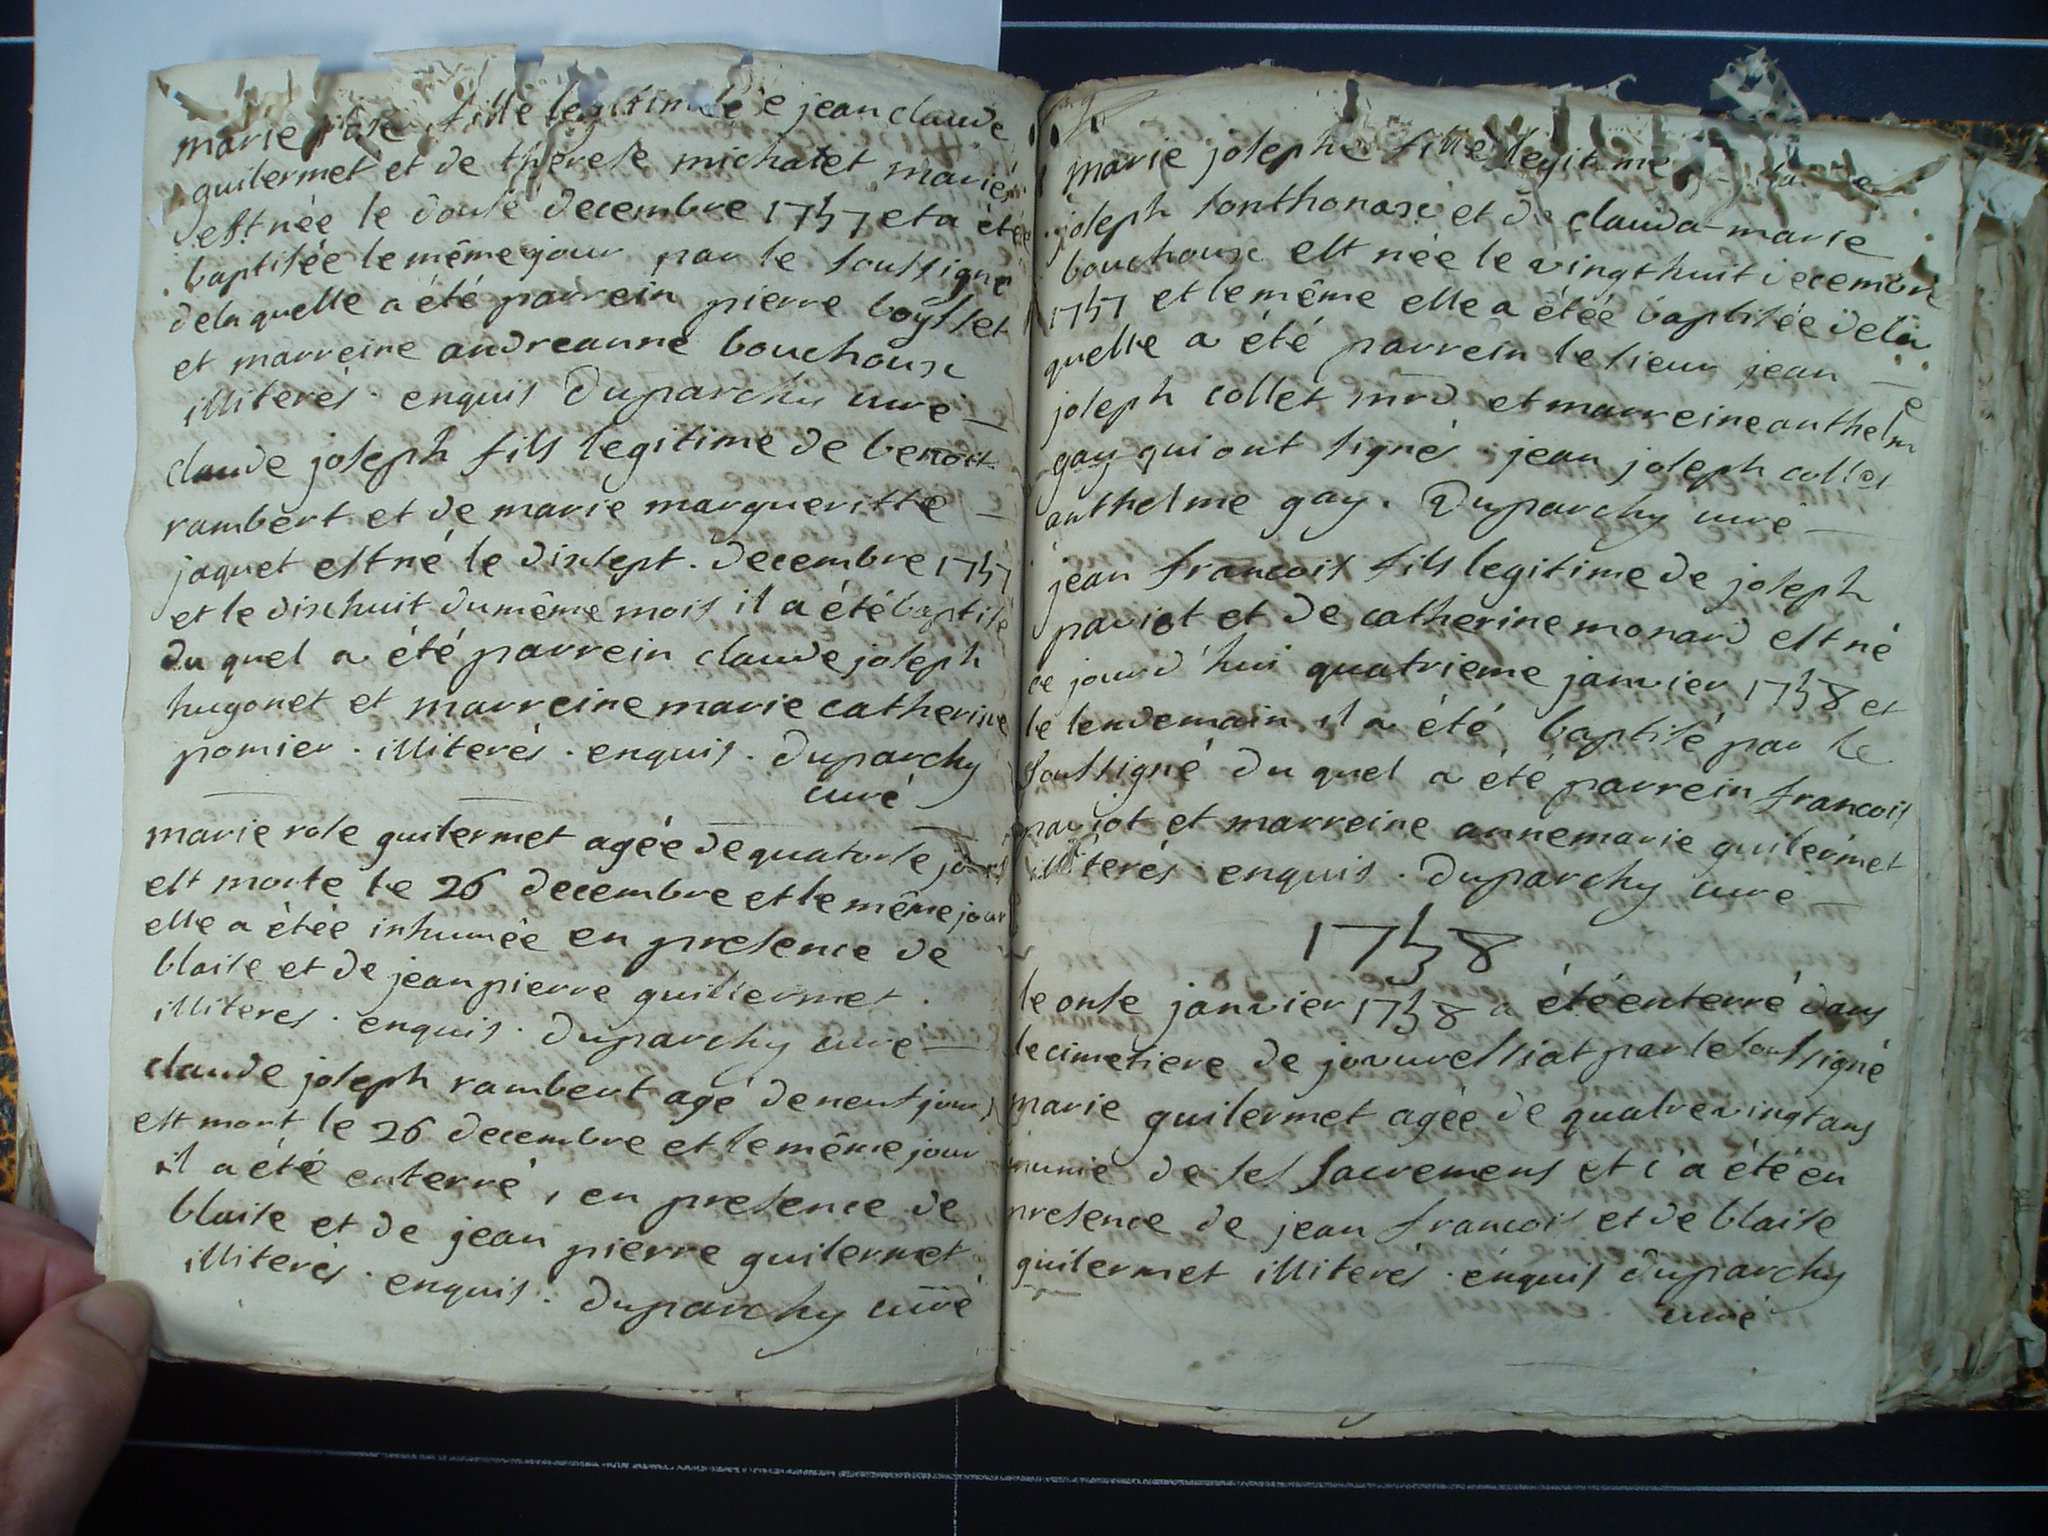 marie rose fille legitime de jean claude
guilermet et de therese michalet mariés
est née le douse decembre 1757 et a été
baptisée le même jour par le soussigné
de la quelle a été parrein pierre boysset
et marreine andreanne bouchoux
illiterés . enquis Duparchy curé
claude joseph fils legitime de benoit
rambert et de marie margueritte
jaquet est né le dixsept . decembre 1757
et le dixhuit du même mois il a été baptisé
du quel a été parrein claude joseph
hugonet et marreine marie catherine
pomier . illiterés . enquis . duparchy
curé
marie rose guilermet agée de quatorse jours
est morte le 26 decembre et le même jour
elle a étée inhumée en presence de
blaise et de jean pierre guillermet .
illiteres . enquis . duparchy curé
claude joseph rambert agé de neuf jours
est mort le 26 decembre et le même jour
il a été enterré , en presence de
blaise et de jean pierre guilermet
illiterés . enquis . duparchy curé
marie josephe fille legitime
joseph sonthonax et de clauda marie
bouchoux est née le vingthuit decembre
1757 et le même elle a étée baptisée de la
quelle a été parrein le sieur jean
joseph collet mrd et marreine anthelme
gay qui ont signés . jean joseph collet
anthelme gay . Duparchy curé
jean francois fils legitime de joseph
paviot et de catherine monard est né
ce jourd'hui quatrieme janvier 1758 et
le lendemain il a été baptisé par le
soussigné du quel a été parrein francois
paviot et marreine annemarie guilermet
illiterés . enquis . duparchy curé
1758
le onse janvier 1758 a été enterré dans
le cimetiere de jovuressiat par le soussigné
marie guilermet agée de quatrevingt ans
munie de ses sacremens et c'a été en
presence de jean francois et de blaise
guilermet illiterés . enquis duparchy
curé